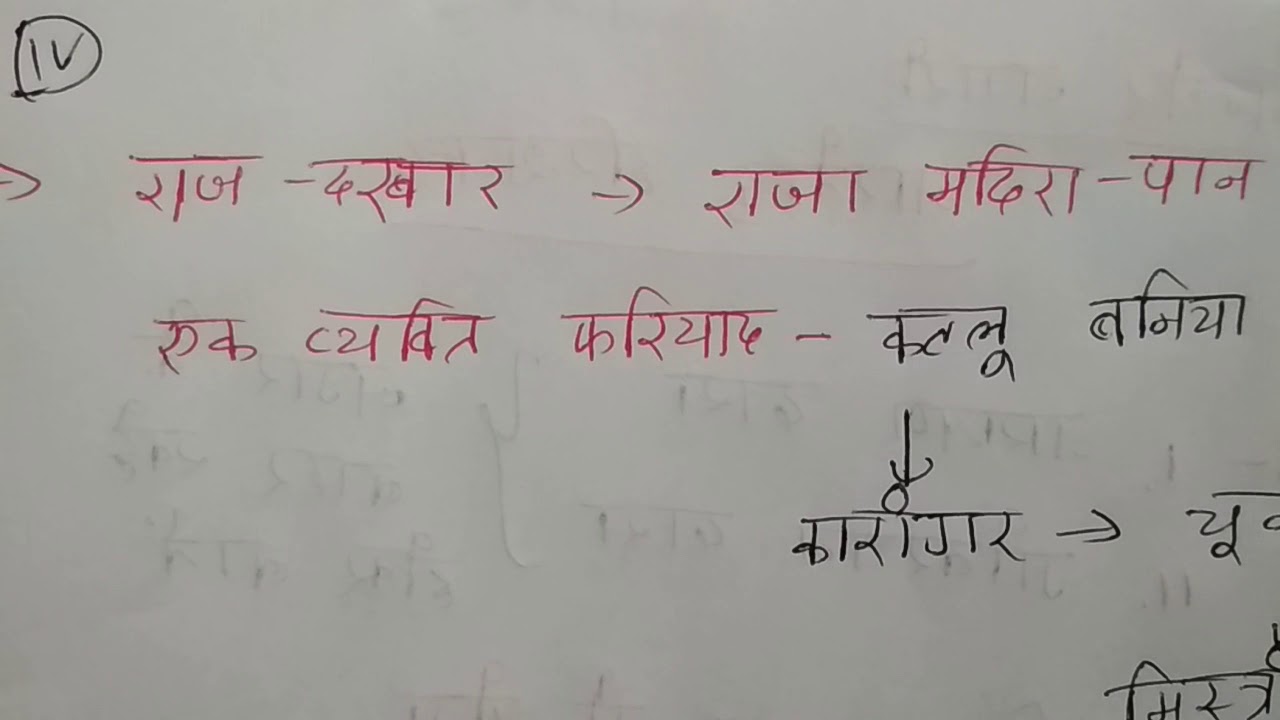 IV
→ राज-दरबार → राजा मदिरा-पान
एक व्यक्ति फरियाद - कल्लू बनिया
↓
कारीगर → चू
मिस्त्री